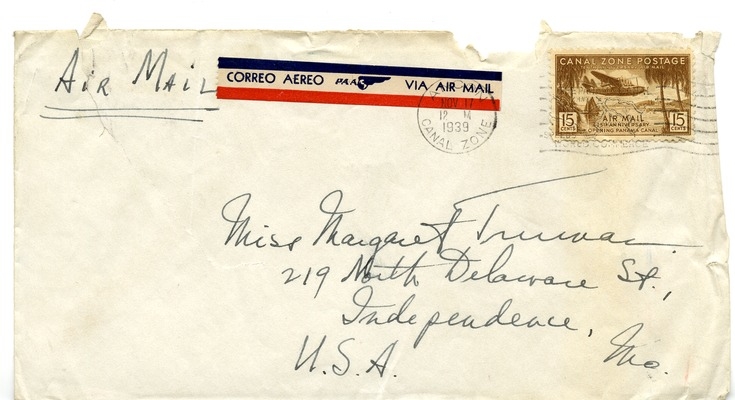 Air Mail
CORREO AEREO PAA VIA AIR MAIL
NOV 17
12 M
1939
CANAL ZONE
CANAL ZONE POSTAGE
15 CENTS
AIR MAIL
25TH ANNIVERSARY
OPENING PANAMA CANAL
15 CENTS
Miss Margaret Truman
219 North Delaware St.,
Independence,
Mo.
U.S.A.